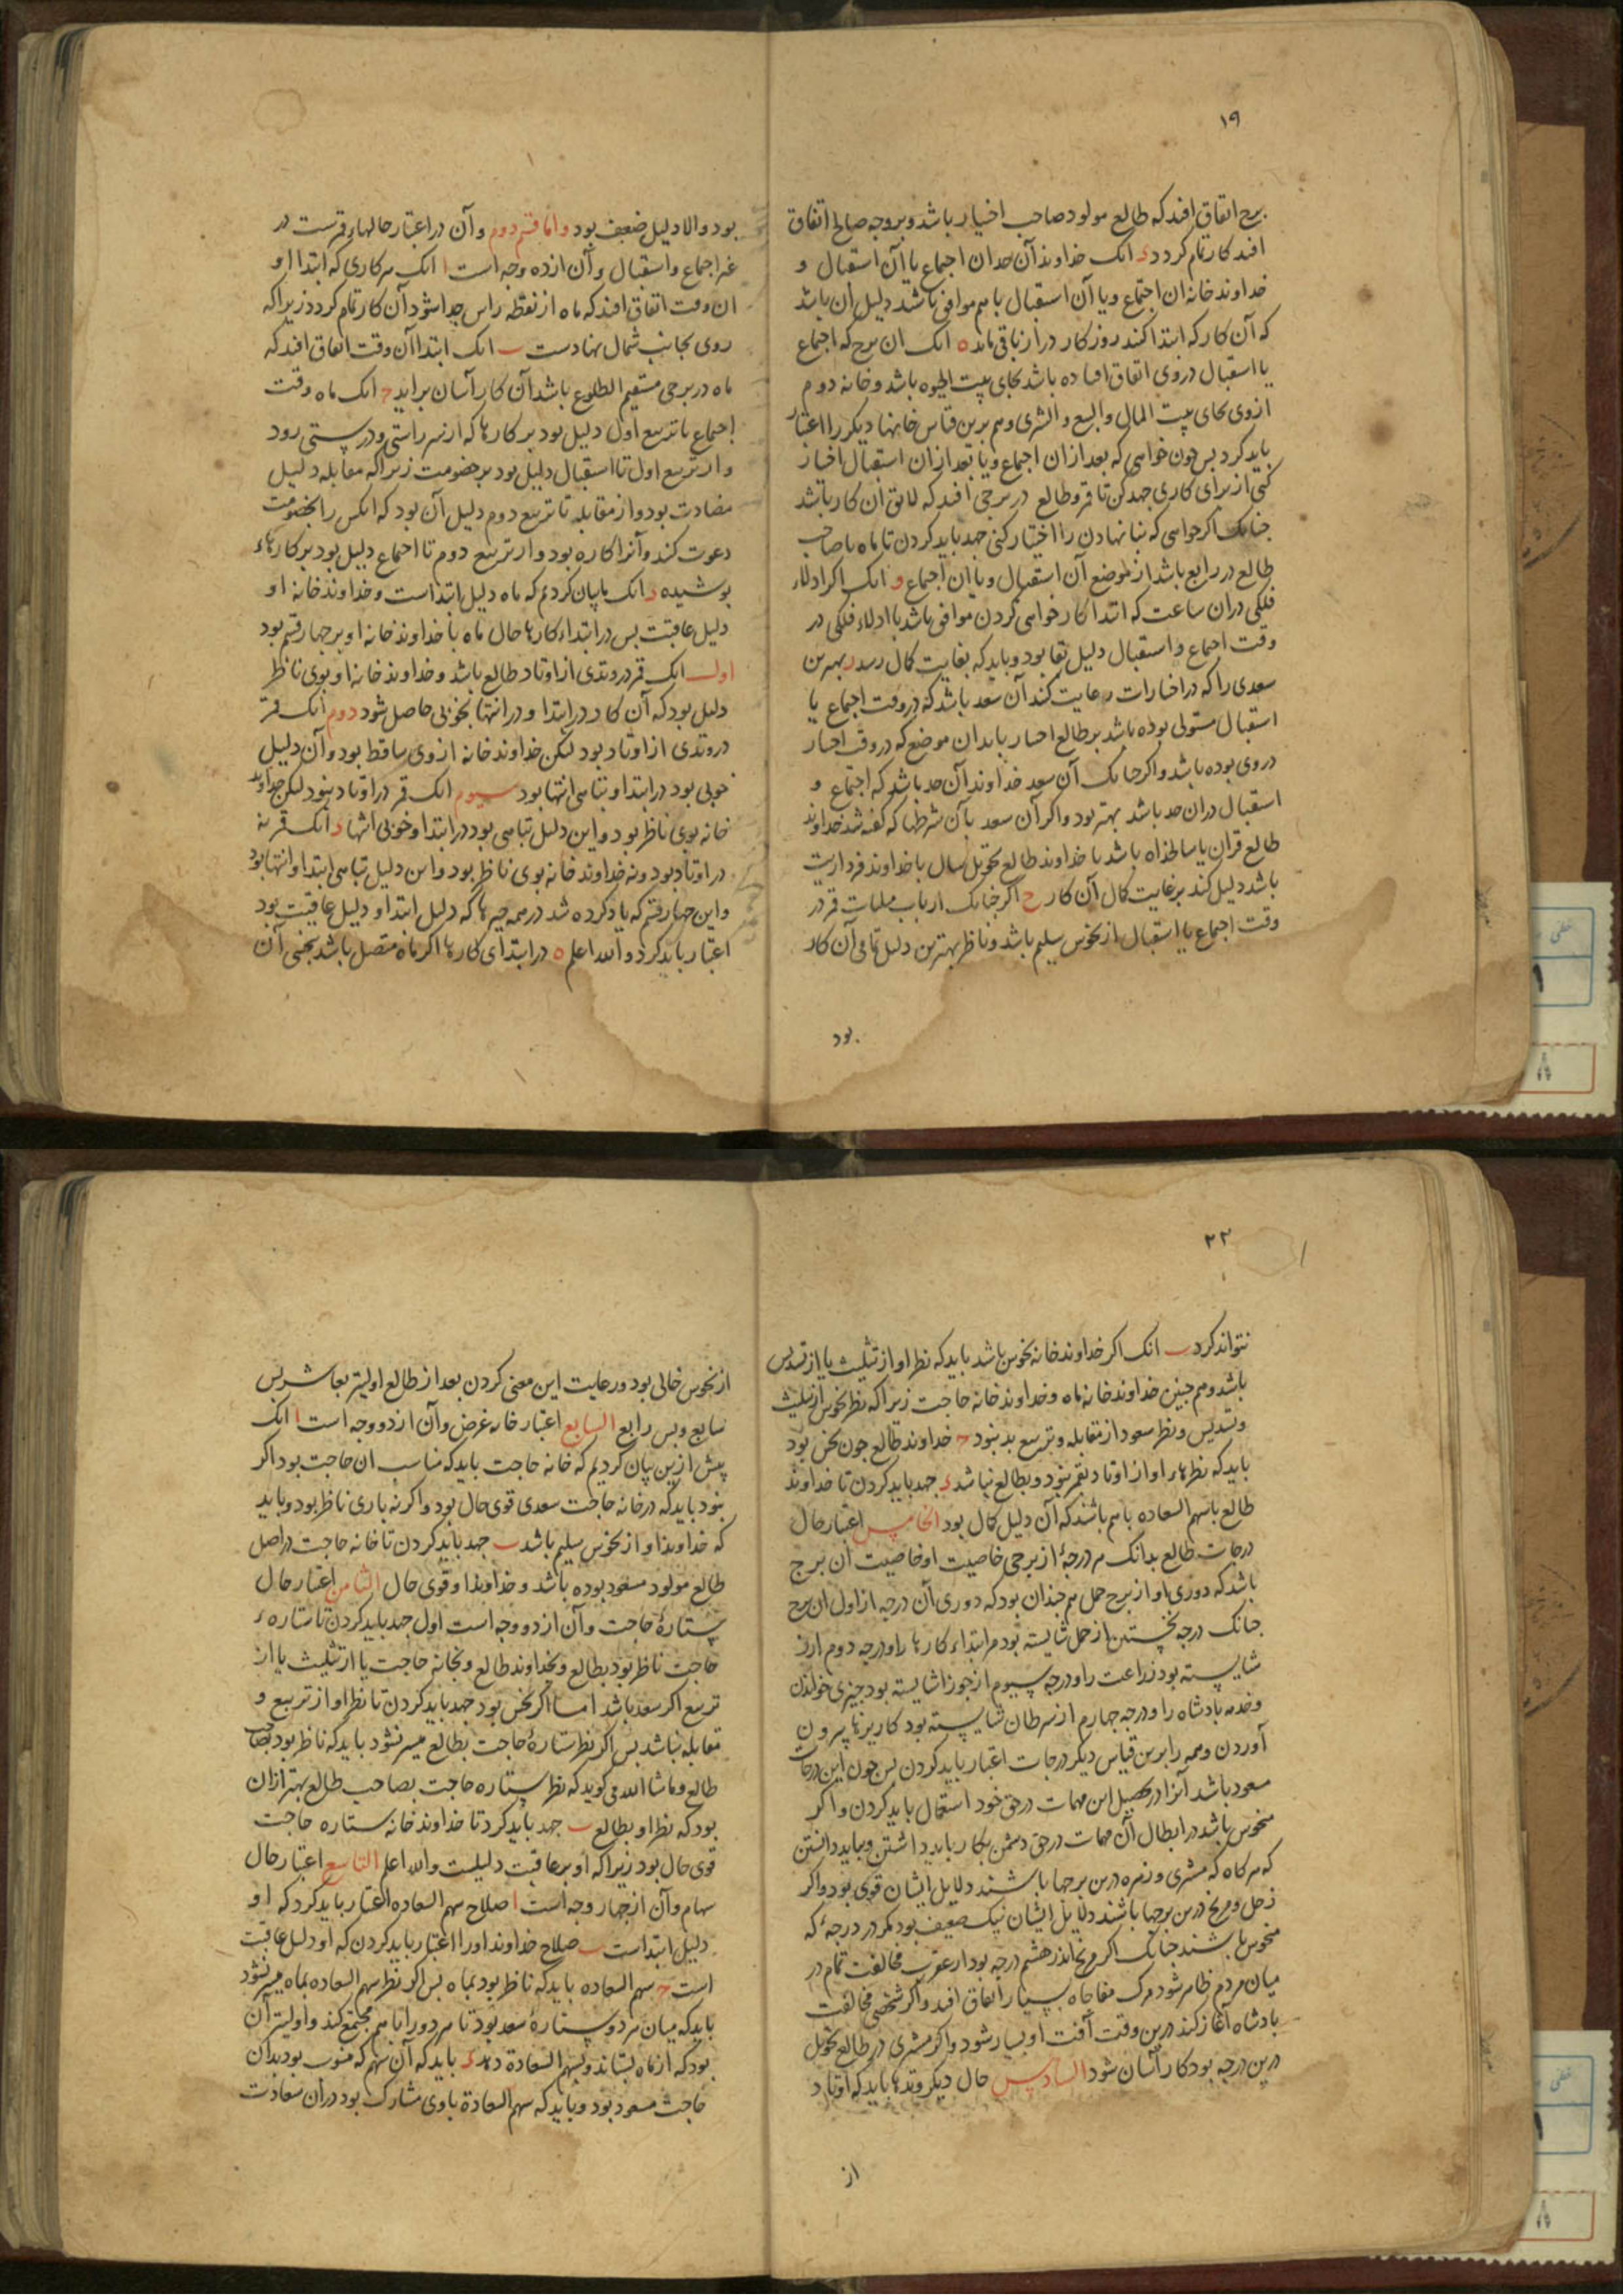 ۱۹
برج اتفاق افتد که طالع مولود صاحب اختیار باشد و بروجه صالح اتفاق
افتد کار تمام کردد د انک خداوند آن حد ان اجتماع یا آن استقبال و
خداوند خانه ان اجتماع ویا آن استقبال باهم موافق باشد دلیل ان باشد
که آن کار که ابتدا کند روزکار دراز باقی ماند ه انک ان برج که اجتماع
یا استقبال در وی اتفاق افتاده باشد بجای بیت الحیوه باشد و خانه دوم
ازوی بجای بیت المال والبیع والشری وهم برین قیاس خانها دیکر را اعتبار
باید کرد بس جون خواهی که بعد ازان اجتماع ویا بعد ازان استقبال اختیار
کنی از برای کاری جهد کن تا قمر و طالع در برجی افتد که لایق آن کار باشد
جنانک اکر خواهی که بنا نهادن را اختیار کنی جهد باید کردن تا ماه با صاحب
طالع در رابع باشد از موضع آن استقبال ویا ان اجتماع و انک اکر ادلاء
فلکی دران ساعت که ابتدا کار خواهی کردن موافق باشد با ادلاء فلکی در
وقت اجتماع و استقبال دلیل بقا بود و باید که بغایت کمال رسد ز بهترین
سعدی را که در اختیارات رعایت کند آن سعد باشد که در وقت اجتماع یا
استقبال مستولی بوده باشد بر طالع اختیار یا بدان موضع که در وقت اختیار
در وی بوده باشد و اکر جنانک آن سعد خداوند آن حد باشد که اجتماع و
استقبال دران حد باشد بهتر بود و اکر آن سعد با آن شرطها که کفته شد خداوند
طالع قران یا سالخذاه باشد یا خداوند طالع تحویل سال یا خداوند فرداریت
باشد دلیل کند بر غایت کمال آن کار ح اکر جنانک ارباب مثلثات قمر در
وقت اجتماع یا استقبال از نحوس سلیم باشد و ناظر بهترین دلیل تمامی آن کار
بود
بود والا دلیل ضعیف بود واما قسم دوم وآن در اعتبار حالهاء قمرست در
غیر اجتماع و استقبال وآن از ده وجه است ا انک هر کاری که ابتدا او
ان وقت اتفاق افتد که ماه از نقطه راس جدا شود آن کار تمام کردد زیرا که
روی بجانب شمال نهادست ب انک ابتدا آن وقت اتفاق افتد که
ماه در برجی مستقیم الطلوع باشد آن کار آسان براید ج انک ماه وقت
اجتماع تا تربیع اول دلیل بود بر کارها که از سر راستی و درستی رود
واز تربیع اول تا استقبال دلیل بود بر خصومت زیرا که مقابله دلیل
مضادت بود واز مقابله تا تربیع دوم دلیل آن بود که انکس را بخصومت
دعوت کند وآنرا کاره بود واز تربیع دوم تا اجتماع دلیل بود بر کارهاء
بوشیده د انک ما بیان کردیم که ماه دلیل ابتداست و خداوند خانه او
دلیل عاقبت بس در ابتداء کارها حال ماه با خداوند خانه او بر جهار قسم بود
اول انک قمر در وتدی از اوتاد طالع باشد و خداوند خانه او بوی ناظر
دلیل بود که آن کار در ابتدا و در انتها بخوبی حاصل شود دوم انک قمر
در وتدی از اوتاد بود لیکن خداوند خانه ازوی ساقط بود وآن دلیل
خوبی بود در ابتدا و تباهی انتها بود سیوم انک قمر در اوتاد نبود لیکن خداوند
خانه بوی ناظر بود واین دلیل تباهی بود در ابتدا وخوبی انتها د انک قمر نه
در اوتاد بود ونه خداوند خانه بوی ناظر بود واین دلیل تباهی ابتدا وانتها بود
واین جهار قسم که یاد کرده شد در همه جیزها که دلیل ابتدا و دلیل عاقبت بود
اعتبار باید کرد والله اعلم ه در ابتدای کارها اکر ماه متصل باشد بنحسی آن
۲۲
نتواند کرد ب انک اکر خداوند خانه نحوس باشد باید که نظر او از تثلیث یا از تسدیس
باشد وهم جنین خداوند خانه ماه و خداوند خانه حاجت زیرا که نظر نحوس از تثلیث
وتسدیس ونظر سعود از مقابله وتربیع بد نبود ج خداوند طالع جون نحس بود
باید که نظرهاء او از اوتاد بقمر نبود وبطالع نباشد د جهد باید کردن تا خداوند
طالع با سهم السعاده باهم باشند که آن دلیل کمال بود الخامس اعتبار حال
درجات طالع بدانک هر درجهٔ از برجی خاصیت او خاصیت ان برج
باشد که دوری او از برج حمل هم جندان بود که دوری آن درجه از اول ان برج
جنانک درجه نخستین از حمل شایسته بود مر ابتداء کارها را ودرجه دوم ازو
شایسته بود زراعت را ودرجه سیوم از جوزا شایسته بود جیزی خواندن
وخدمه بادشاه را ودرجه جهارم از سرطان شایسته بود کاریزها بیرون
آوردن وهمه را برین قیاس دیکر درجات اعتبار باید کردن بس جون این درجات
مسعود باشد آنرا در تحصیل این مهمات در حق خود استعمال باید کردن و اکر
منحوس باشد در ابطال آن مهمات در حق دشمن بکار باید داشتن وبباید دانستن
که هر کاه که مشتری و زهره درین برجها باشند دلایل ایشان قوی بود واکر
زحل ومریخ درین برجها باشند دلایل ایشان نیک ضعیف بود مکر در درجهٔ که
منحوس باشند جنانک اکر مریخ اندر هشتم درجه بود از عقرب مخالفت تمام در
میان مردم ظاهر شود و مرک مفاجاه بسیار اتفاق افتد واکر شخصی مخالفت
بادشاه آغاز کند درین وقت آفت او بسیار شود واکر مشتری در طالع تحویل
درین درجه بود کار آسان شود السادس حال دیکر وتدها باید که اوتاد
از
از نحوس خالی بود ورعایت این معنی کردن بعد از طالع اولیتر بعاشر بس
سابع وبس رابع السابع اعتبار خانه غرض وآن از دو وجه است ا انک
پیش ازین بیان کردیم که خانه حاجت باید که مناسب ان حاجت بود اکر
نبود باید که در خانه حاجت سعدی قوی حال بود واکر نه باری ناظر بود وباید
که خداوند او از نحوس سلیم باشد ب جهد باید کردن تا خانه حاجت در اصل
طالع مولود مسعود بوده باشد و خداوند او قوی حال الثامن اعتبار حال
ستارهٔ حاجت وآن از دو وجه است اول جهد باید کردن تا ستارهٔ
حاجت ناظر بود بطالع وبخداوند طالع وبخانه حاجت یا از تثلیث یا از
تربیع اکر سعد باشد اما اکر نحس بود جهد باید کردن تا نظر او از تربیع و
مقابله نباشد بس اکر نظر ستارهٔ حاجت بطالع میسر نشود باید که ناظر بود بصاحب
طالع وماشاالله می کوید که نظر ستاره حاجت بصاحب طالع بهتر ازان
بود که نظر او بطالع ب جهد باید کرد تا خداوند خانه ستاره حاجت
قوی حال بود زیرا که او بر عاقبت دلیلست والله اعلم التاسع اعتبار حال
سهام وآن از جهار وجه است ا صلاح سهم السعاده اعتبار باید کرد که او
دلیل ابتداست ب صلاح خداوند او را اعتبار باید کردن که او دلیل عاقبت
است ج سهم السعاده باید که ناظر بود بماه بس اکر نظر سهم السعاده بماه میسر نشود
باید که میان هر دو ستارهٔ سعد بود تا هر دو را باهم مجتمع کند واولیتر آن
بود که از ماه بستاند وبسهم السعادة دهد د باید که آن سهم که منسوب بود بدان
حاجت مسعود بود وباید که سهم السعادة باوی مشارک بود دران سعادت